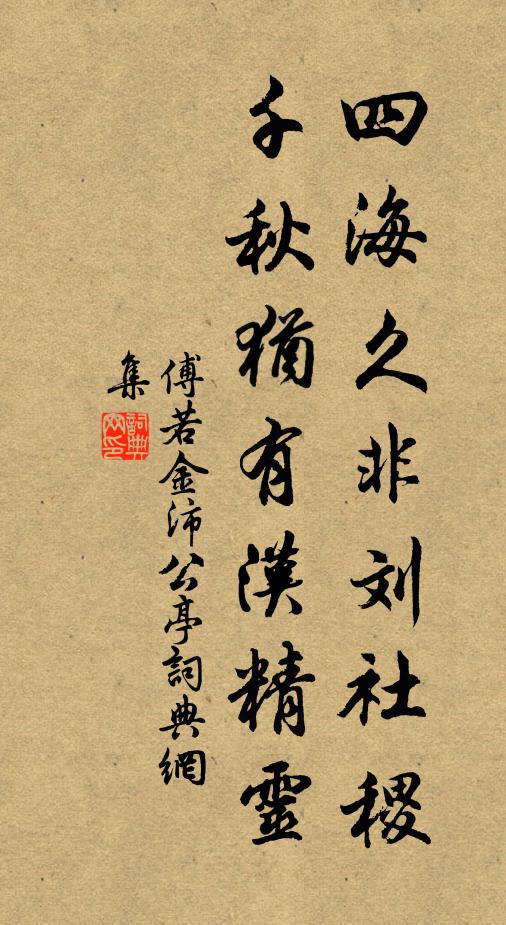 四海久非刘社稷
千秋猶有漢精靈
傅若金沛公亭詞典網
集
詞典網印